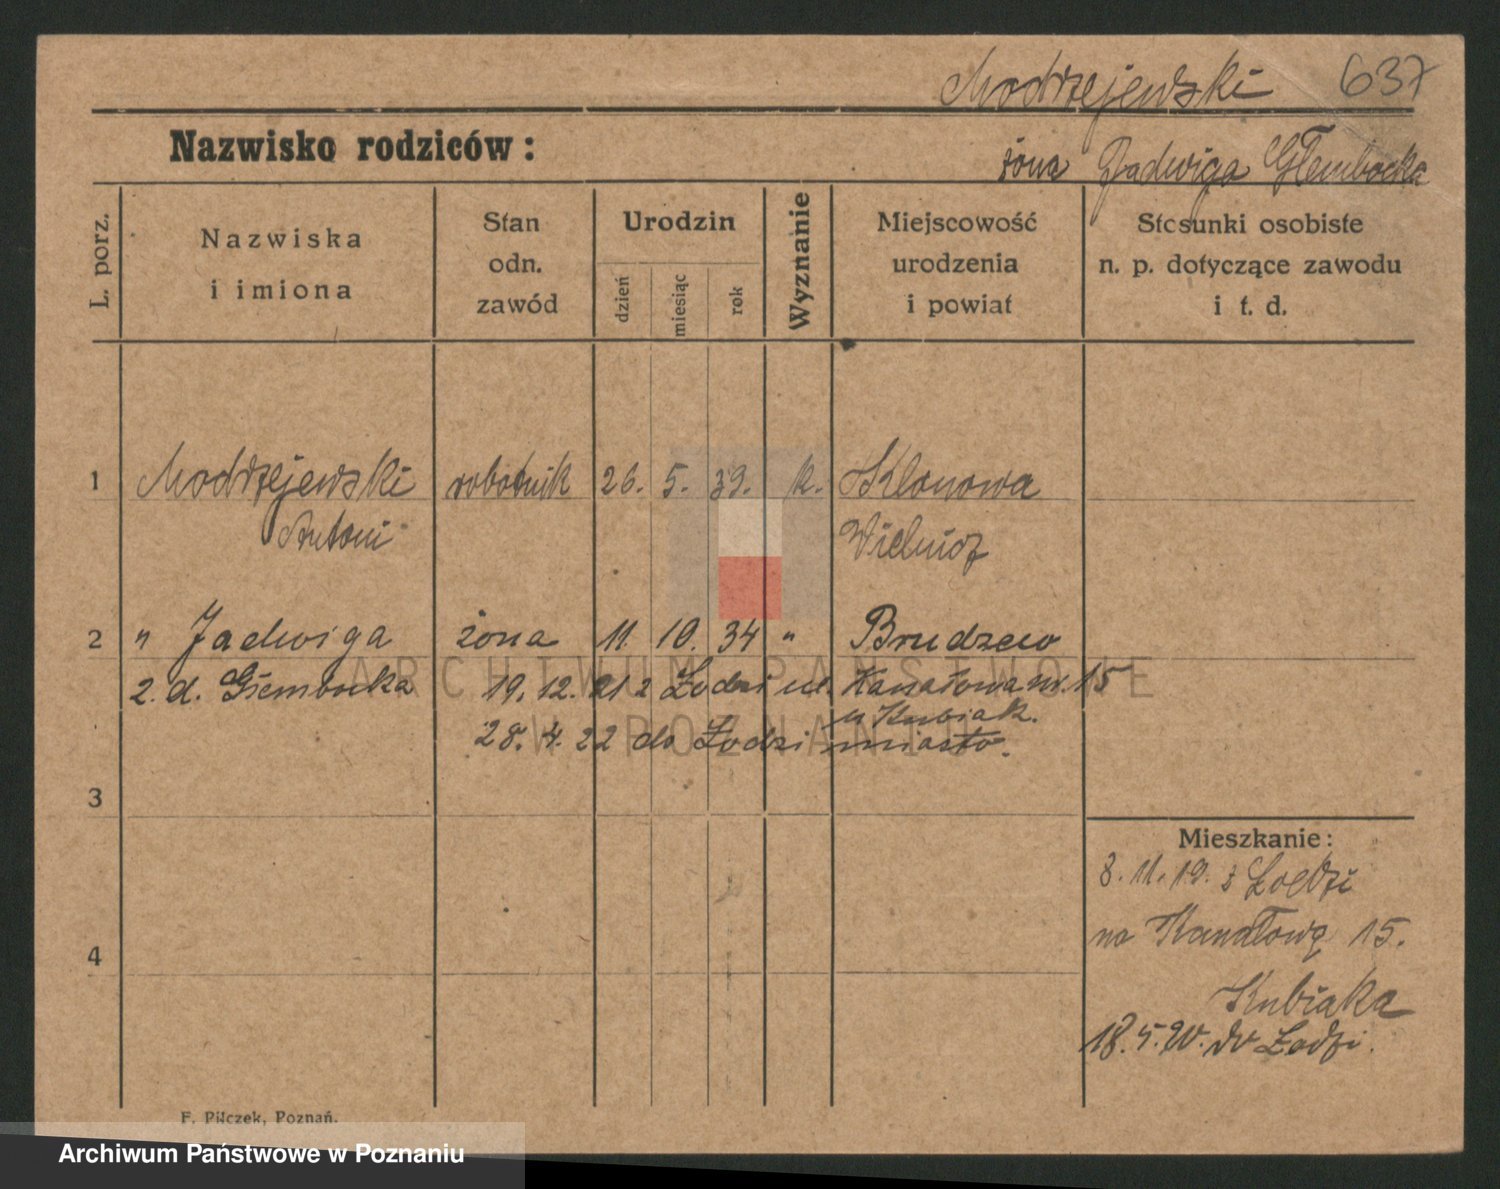 Modrzejewski 637
Nazwisko rodziców:
żona Jadwiga Głembocka
L. porz.
Nazwiska
i imiona
Stan
odn.
zawód
Urodzin
dzień
miesiąc
rok
Wyznanie
Miejscowość
urodzenia
i powiat
Stosunki osobiste
n. p. dotyczące zawodu
i t. d.
1 Modrzejewski robotnik 26. 5. 39. k. Klonowa
Antoni
2 " Jadwiga żona 11. 10. 34 " Brudzew
2. d. Głembocka 19. 12. 21 z Łodzi ul. Kanałowa nr. 15
u Kubiak.
28. 4. 22 do Łodzi miasto.
3
4
Mieszkanie:
8. 11. 19. z Łodzi
na Kanałową 15.
Kubiaka
18. 5. 20. do Łodzi.
F. Pilczek, Poznań.
ARCHIWUM PAŃSTWOWE
W POZNANIU
Archiwum Państwowe w Poznaniu